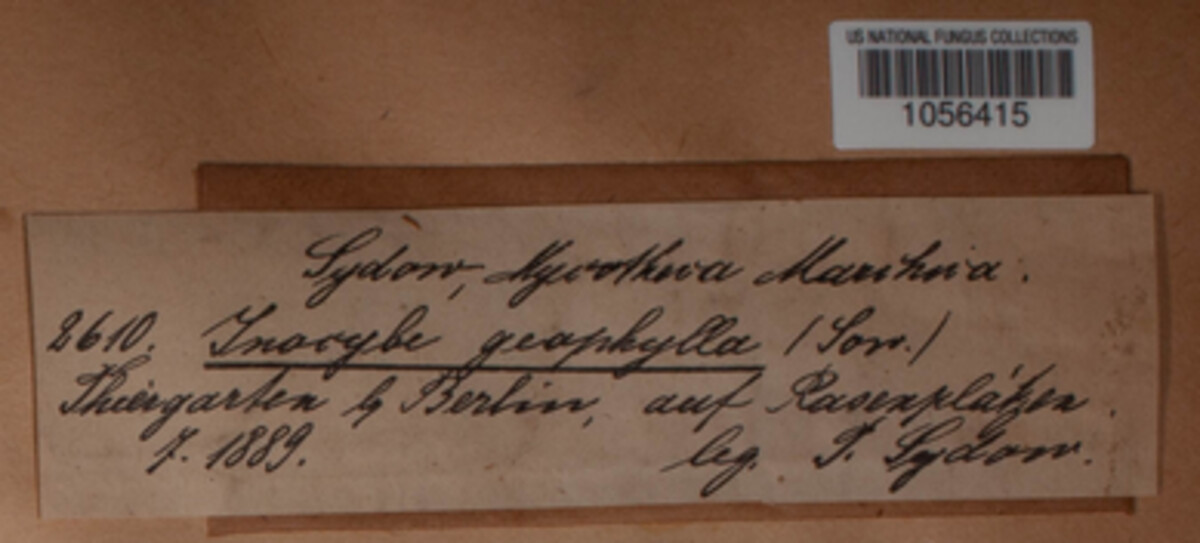 US NATIONAL FUNGUS COLLECTIONS
1056415
Sydow, Mycotheca Marchica.
2610. Inocybe geophylla (Sow.)
Thiergarten b Berlin, auf Rasenplätzen.
7. 1889. leg. P. Sydow.